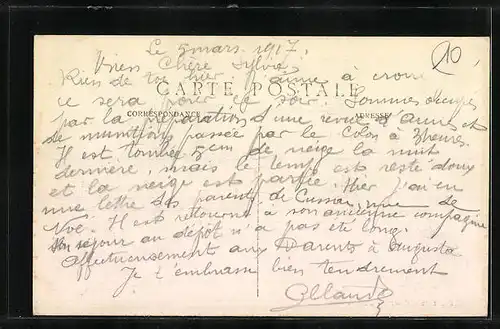 Le 5 mars 1917.
10
Chère Sylvia
Rien de toi hier. J'aime à croire
CARTE POSTALE
ce sera pour ce soir. Sommes occupés
CORRESPONDANCE
ADRESSE
par la préparation d'une revue d'armes et
de munitions passée par le Colon à 3 heures.
Il est tombé 5 cm de neige la nuit
dernière, mais le temps est resté doux
et la neige est partie. Hier j'ai eu
une lettre des parents de Cussac, une de
Noé. Il est retourné à son ancienne compagnie
Son séjour au dépôt n'a pas été long.
Affectueusement aux Parents à Augusta
Je t'embrasse bien tendrement